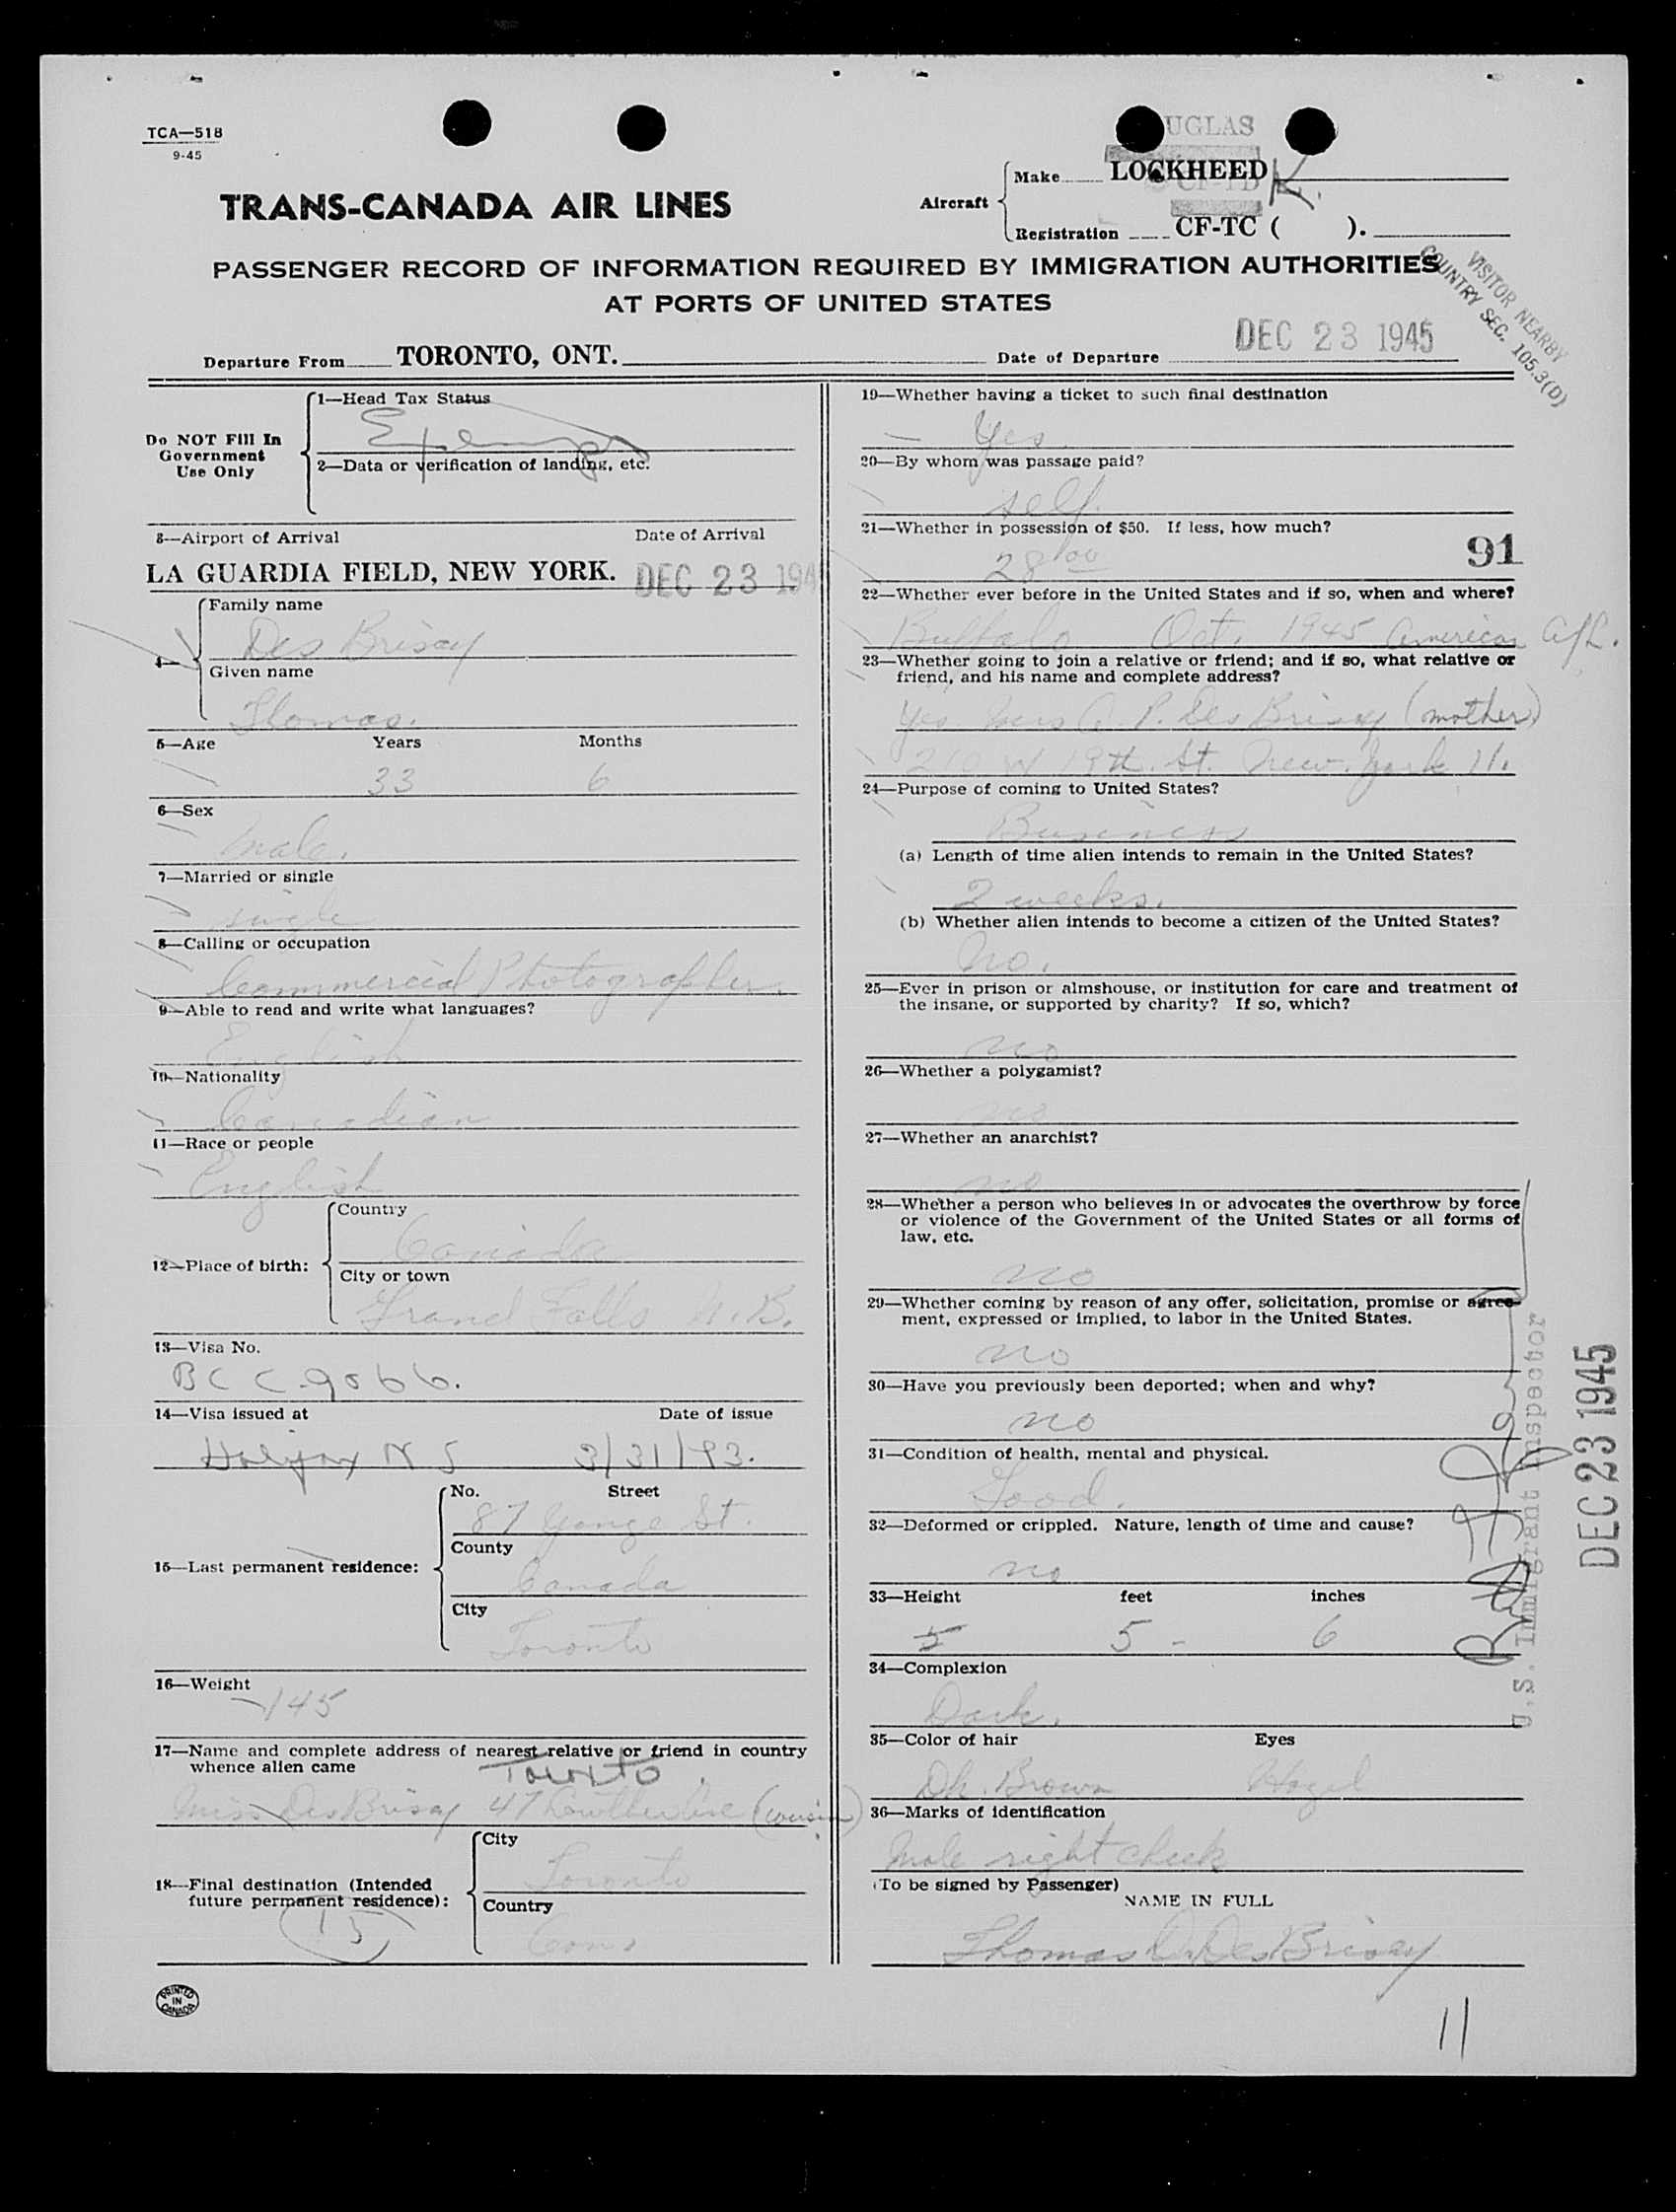 TCA—518
9-45
UGLAS
TRANS-CANADA AIR LINES
Aircraft
Make LOCKHEED K.
Registration CF-TC ( ).
PASSENGER RECORD OF INFORMATION REQUIRED BY IMMIGRATION AUTHORITIES
AT PORTS OF UNITED STATES
VISITOR NEARBY
COUNTRY SEC. 105.3(D)
Departure From TORONTO, ONT. Date of Departure DEC 23 1945
Do NOT Fill In
Government
Use Only
1—Head Tax Status
Exempt
2—Data or verification of landing, etc.
3—Airport of Arrival Date of Arrival
LA GUARDIA FIELD, NEW YORK. DEC 23 194
4—
Family name
Des Brisay
Given name
Thomas.
5—Age Years Months
33 6
6—Sex
Male.
7—Married or single
single
8—Calling or occupation
Commercial Photographer.
9—Able to read and write what languages?
English
10—Nationality
Canadian
11—Race or people
English
12—Place of birth:
Country
Canada
City or town
Grand Falls N.B.
13—Visa No.
BCC-9066.
14—Visa issued at Date of issue
Halifax N S 3/31/43.
15—Last permanent residence:
No. Street
87 Yonge St.
County
Canada
City
Toronto
16—Weight
145
17—Name and complete address of nearest relative or friend in country
whence alien came
Toronto
Miss Des Brisay 47 Lowther Ave (cousin)
18—Final destination (Intended
future permanent residence):
City
Toronto
Country
Can
15
PRINTED
IN
CANADA
19—Whether having a ticket to such final destination
Yes.
20—By whom was passage paid?
self.
21—Whether in possession of $50. If less, how much?
28.00
91
22—Whether ever before in the United States and if so, when and where?
Buffalo Oct. 1945 American A/L.
23—Whether going to join a relative or friend; and if so, what relative or
friend, and his name and complete address?
Yes. Mrs P. Des Brisay (mother)
210 W 19th. St. New York 11.
24—Purpose of coming to United States?
Business
(a) Length of time alien intends to remain in the United States?
2 weeks.
(b) Whether alien intends to become a citizen of the United States?
No.
25—Ever in prison or almshouse, or institution for care and treatment of
the insane, or supported by charity? If so, which?
no
26—Whether a polygamist?
no
27—Whether an anarchist?
no
28—Whether a person who believes in or advocates the overthrow by force
or violence of the Government of the United States or all forms of
law, etc.
no
29—Whether coming by reason of any offer, solicitation, promise or agree-
ment, expressed or implied, to labor in the United States.
no
30—Have you previously been deported; when and why?
no
31—Condition of health, mental and physical.
Good.
32—Deformed or crippled. Nature, length of time and cause?
no
33—Height feet inches
5 5 - 6
34—Complexion
Dark.
35—Color of hair Eyes
Dk. Brown Hazel
36—Marks of identification
Mole right cheek
(To be signed by Passenger)
NAME IN FULL
Thomas Des Brisay
U.S. Immigrant Inspector
DEC 23 1945
11